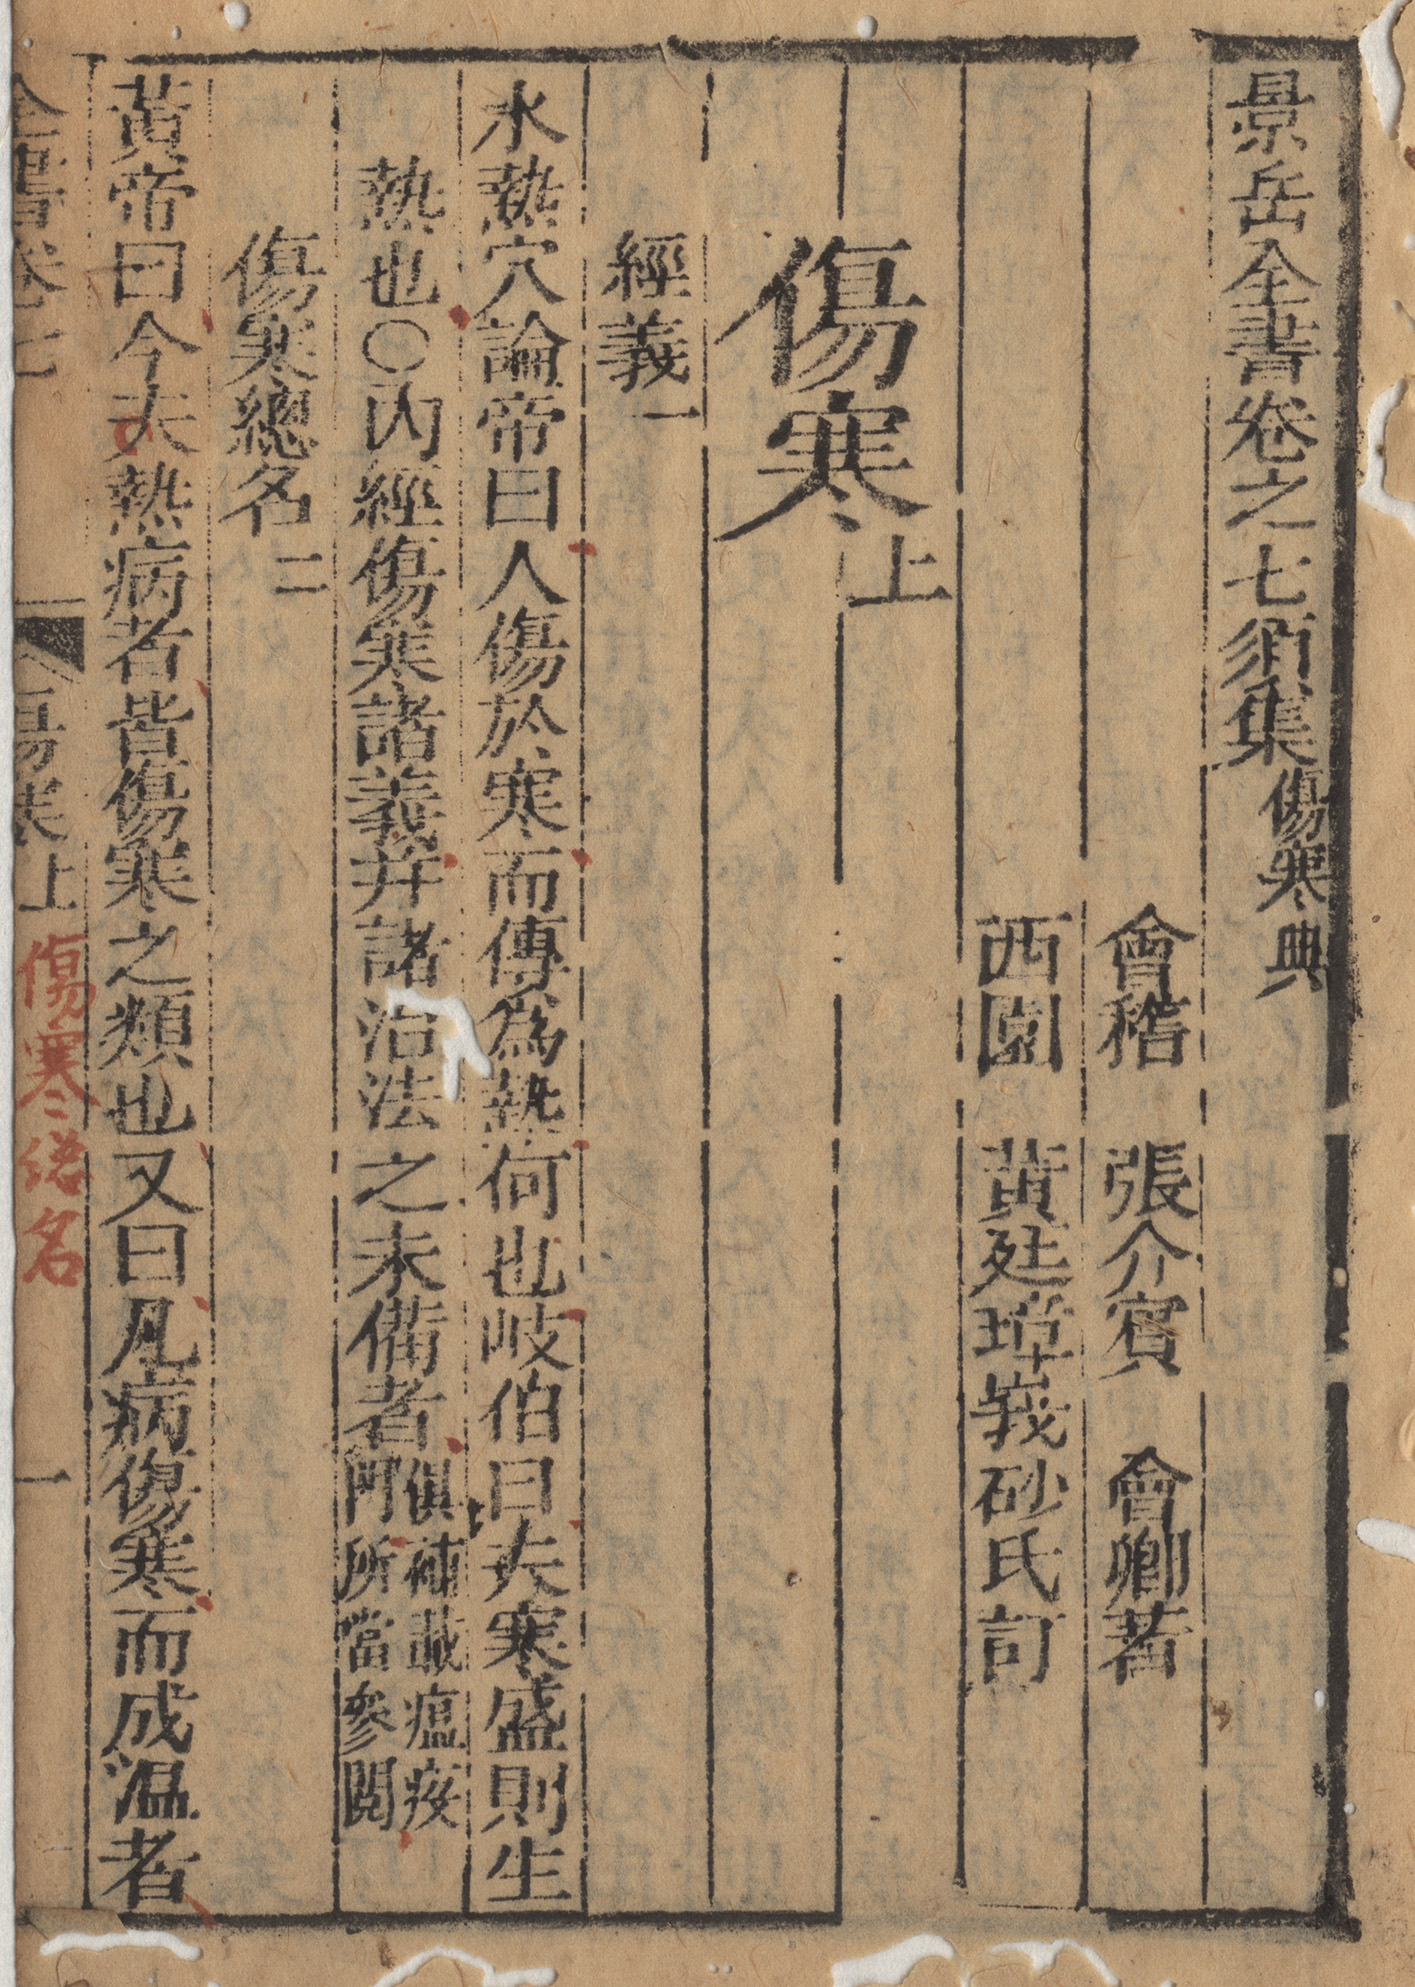 景岳全書卷之七須集傷寒典
會稽 張介賓 會卿著
西園 黃廷璋峩砂氏訂
傷寒上
經義一
水熱穴論帝曰人傷於寒而傳為熱何也岐伯曰夫寒盛則生
熱也〇內經傷寒諸義并諸治法之未備者俱補載瘟疫門所當參閱
傷寒總名二
黃帝曰今夫熱病者皆傷寒之類也又曰凡病傷寒而成溫者
全書卷七 傷寒上 一
傷寒總名